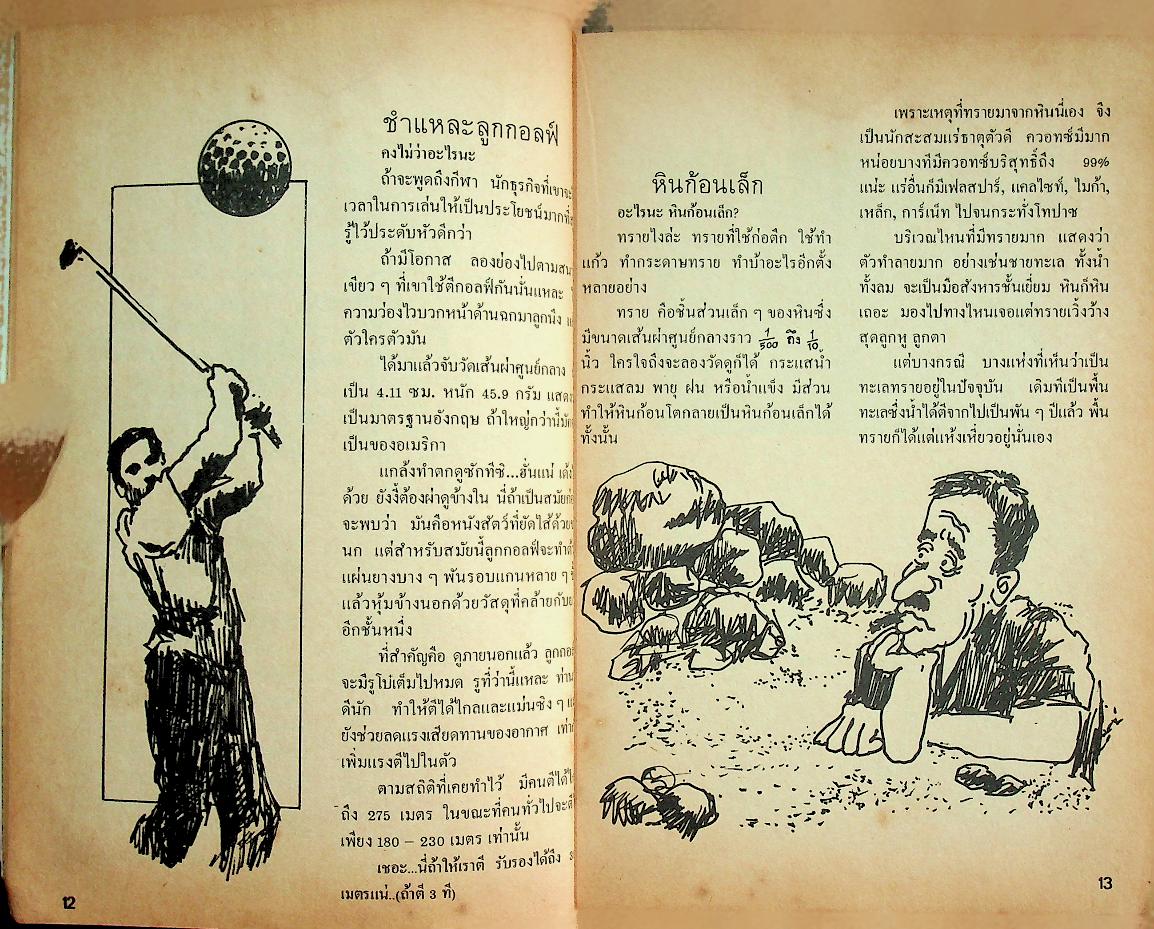 ชำแหละลูกกอลฟ์
คงไม่ว่าอะไรนะ
ถ้าจะพูดถึงกีฬา นักธุรกิจที่เขาจะ
เวลาในการเล่นให้เป็นประโยชน์มากที่
รู้ไว้ประดับหัวดีกว่า
ถ้ามีโอกาส ลองย่องไปตาม
เขียว ๆ ที่เขาใช้ตีกอลฟ์กันนั่นแหละ
ความว่องไวบวกหน้าด้านฉกมาลูกนึง
ตัวใครตัวมัน
ได้มาแล้วจับวัดเส้นผ่าศูนย์กลาง
เป็น 4.11 ซม. หนัก 45.9 กรัม
เป็นมาตรฐานอังกฤษ ถ้าใหญ่กว่านี้
เป็นของอเมริกา
แกล้งทำตกดูซักทีซิ...ฮั่นแน่
ด้วย ยังงี้ต้องผ่าดูข้างใน นี่ถ้าเป็นสมัย
จะพบว่า มันคือหนังสัตว์ที่ยัดไส้ด้วย
นก แต่สำหรับสมัยนี้ลูกกอลฟ์จะทำ
แผ่นยางบาง ๆ พันรอบแกนหลาย ๆ
แล้วหุ้มข้างนอกด้วยวัสดุที่คล้ายกับ
อีกชั้นหนึ่ง
ที่สำคัญคือ ดูภายนอกแล้ว
จะมีรูโบ๋เต็มไปหมด รูที่ว่านี้แหละ
ดีนัก ทำให้ตีได้ไกลและแม่นซิง ๆ
ยังช่วยลดแรงเสียดทานของอากาศ
เพิ่มแรงตีไปในตัว
ตามสถิติที่เคยทำไว้ มีคนตีได้
ถึง 275 เมตร ในขณะที่คนทั่วไปจะ
เพียง 180 – 230 เมตร เท่านั้น
เชอะ...นี่ถ้าให้เราตี รับรองได้ถึง
เมตรแน่..(ถ้าตี 3 ที)
12
หินก้อนเล็ก
อะไรนะ หินก้อนเล็ก?
ทรายไงล่ะ ทรายที่ใช้ก่อตึก ใช้ทำ
แก้ว ทำกระดาษทราย ทำบ้าอะไรอีกตั้ง
หลายอย่าง
ทราย คือชิ้นส่วนเล็ก ๆ ของหินซึ่ง
มีขนาดเส้นผ่าศูนย์กลางราว 1/500 ถึง 1/10
นิ้ว ใครใจถึงจะลองวัดดูก็ได้ กระแสน้ำ
กระแสลม พายุ ฝน หรือน้ำแข็ง มีส่วน
ทำให้หินก้อนโตกลายเป็นหินก้อนเล็กได้
ทั้งนั้น
เพราะเหตุที่ทรายมาจากหินนี่เอง จึง
เป็นนักสะสมแร่ธาตุตัวดี ควอทซ์มีมาก
หน่อยบางทีมีควอทซ์บริสุทธิ์ถึง 99%
แน่ะ แร่อื่นก็มีเฟลสปาร์, แคลไซท์, ไมก้า,
เหล็ก, การ์เน็ท ไปจนกระทั่งโทปาซ
บริเวณไหนที่มีทรายมาก แสดงว่า
ตัวทำลายมาก อย่างเช่นชายทะเล ทั้งน้ำ
ทั้งลม จะเป็นมือสังหารชั้นเยี่ยม หินก็หิน
เถอะ มองไปทางไหนเจอแต่ทรายเวิ้งว้าง
สุดลูกหู ลูกตา
แต่บางกรณี บางแห่งที่เห็นว่าเป็น
ทะเลทรายอยู่ในปัจจุบัน เดิมทีเป็นพื้น
ทะเลซึ่งน้ำได้ตีจากไปเป็นพัน ๆ ปีแล้ว พื้น
ทรายก็ได้แต่แห้งเหี่ยวอยู่นั่นเอง
13